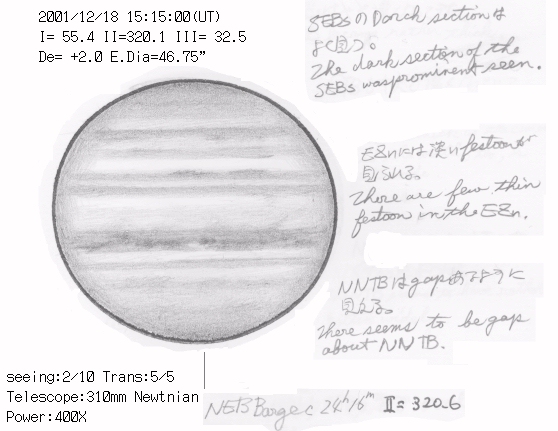 2001/12/18 15:15:00(UT)
I= 55.4 II=320.1 III= 32.5
De= +2.0 E.Dia=46.75”
SEBsのDarck section は
よく見つ。
The dark section of the
SEBs was prominent seen.
EZnには淡いfestoonが
見られる。
There are few thin
festoon in the EZn.
NNTBはgapあるように
見える。
There seems to be gap
about NNTB.
seeing:2/10 Trans:5/5
Telescope:310mm Newtnian
Power:400X
NEB Barge 24h16m II=320.6